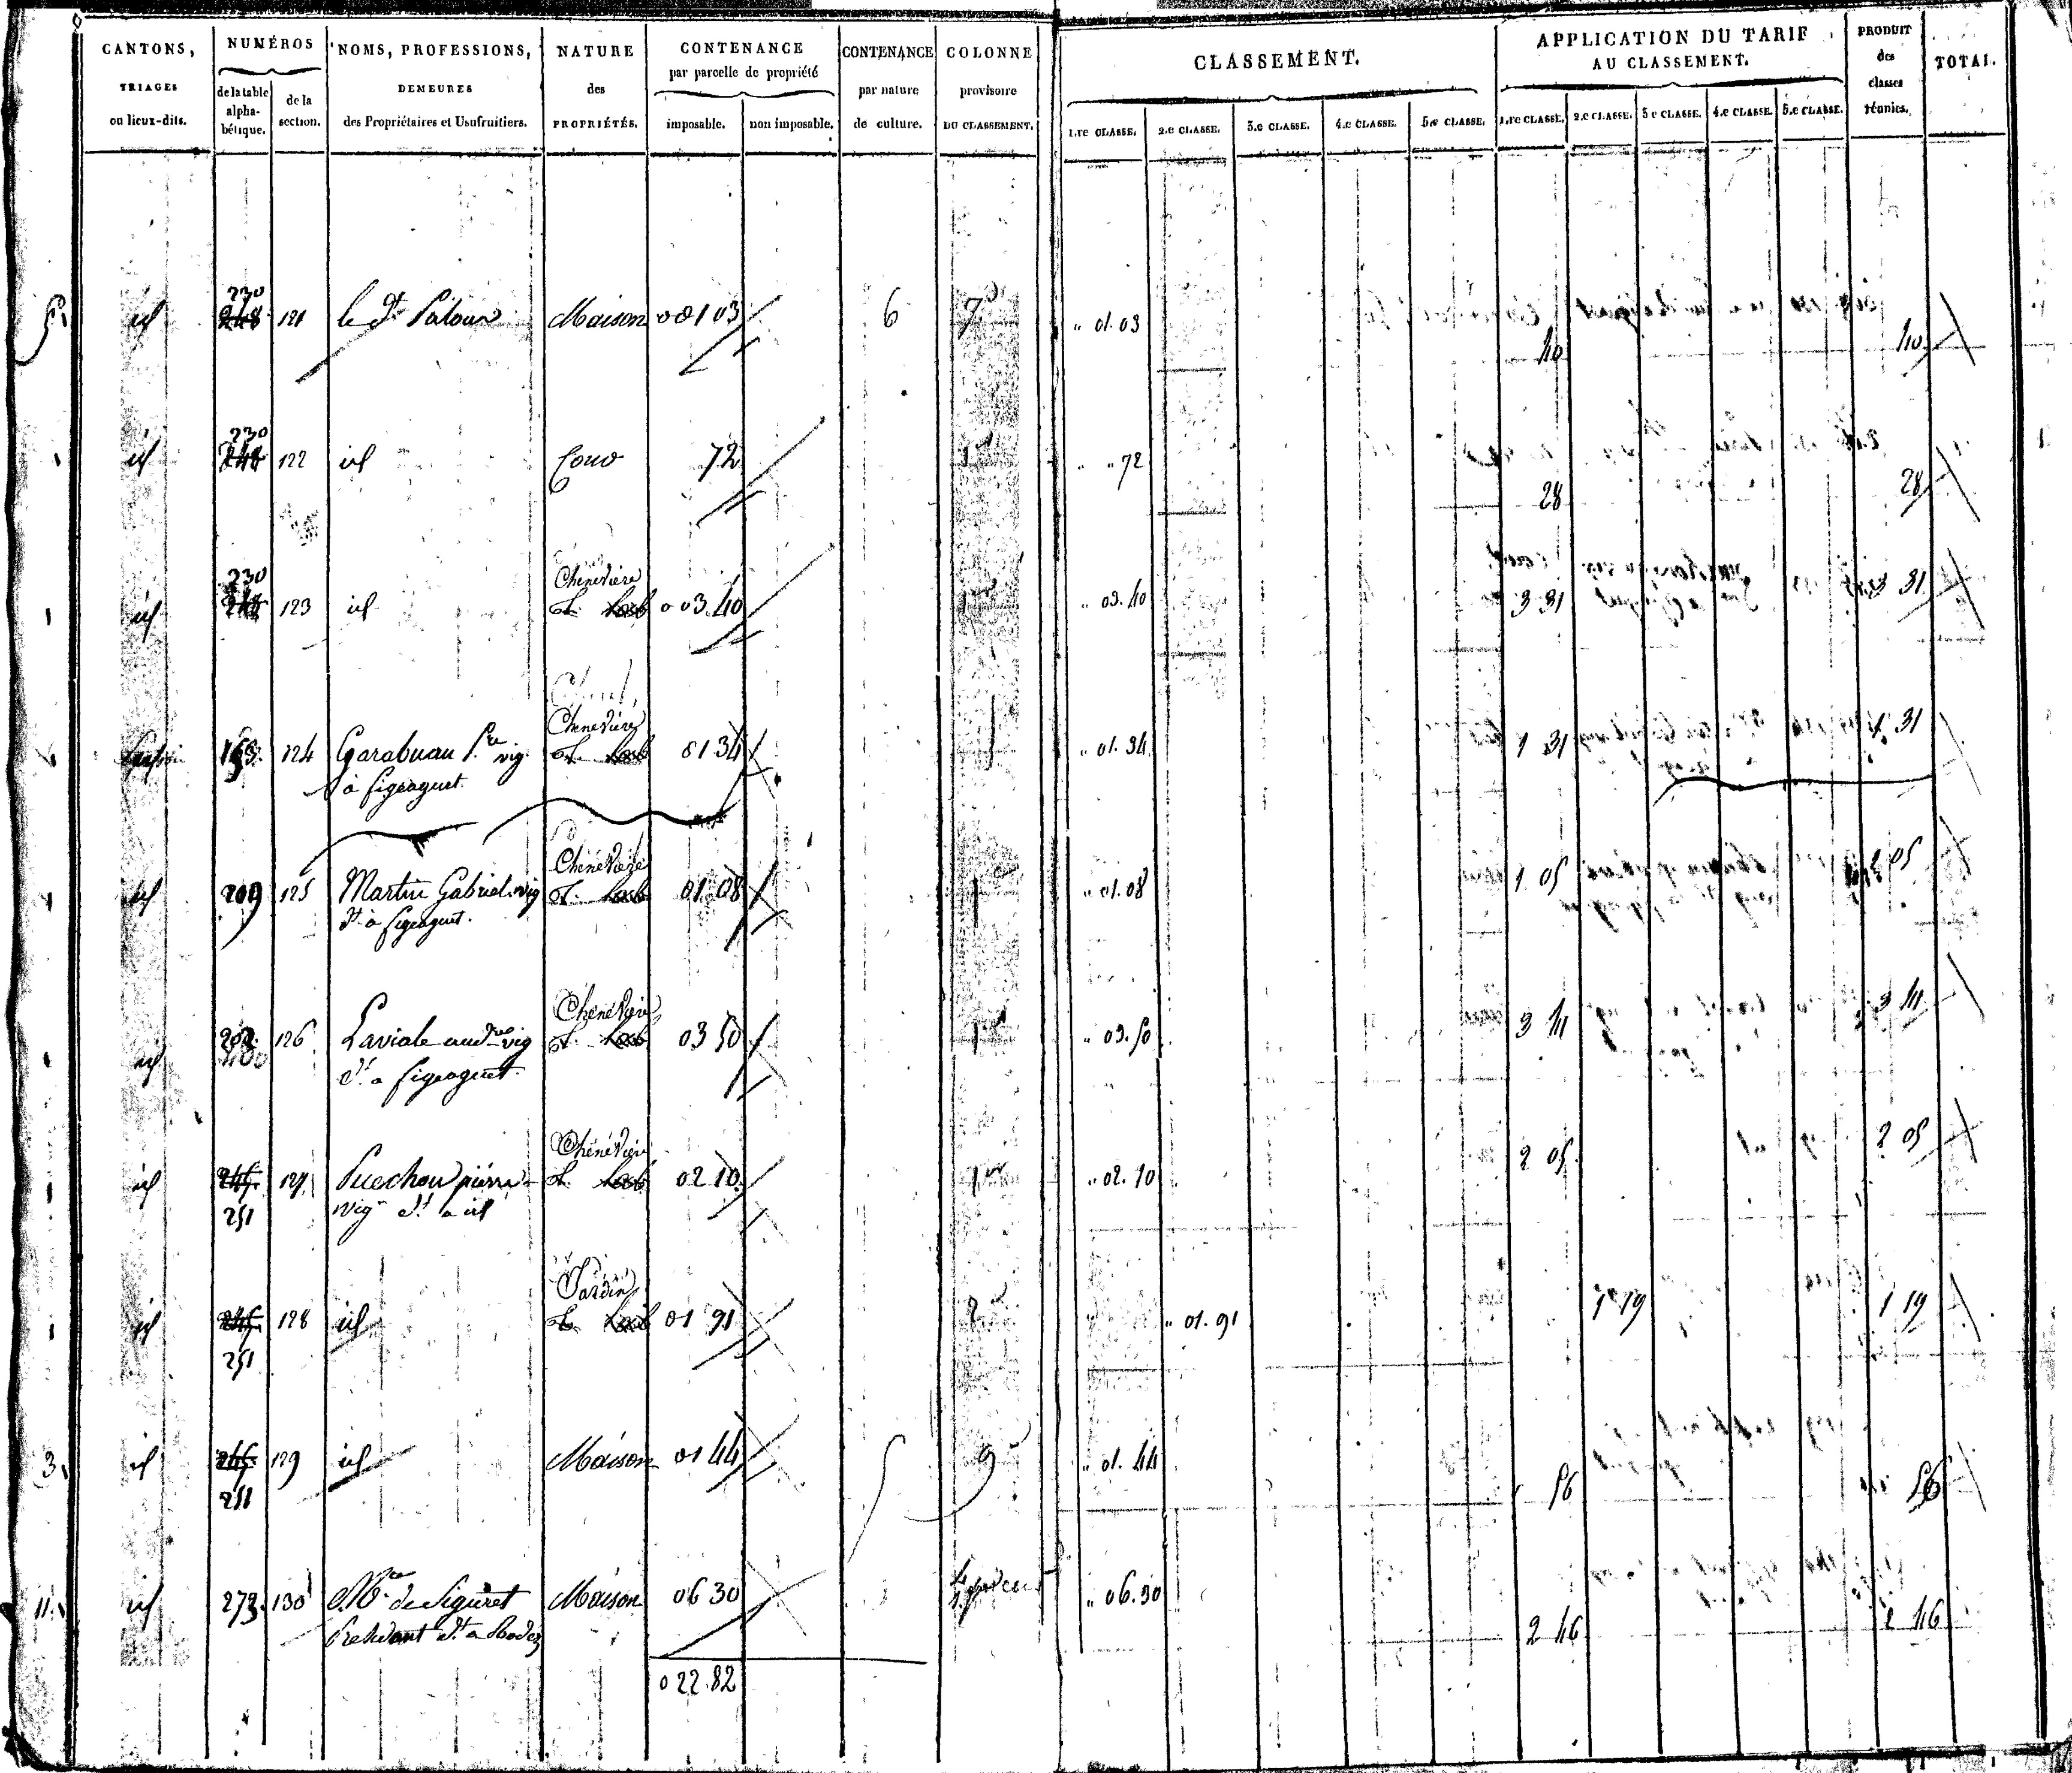 CANTONS, TRIAGES ou lieux-dits.
NUMÉROS
de la table alphabétique.
de la section.
NOMS, PROFESSIONS, DEMEURES des Propriétaires et Usufruitiers.
NATURE des PROPRIÉTÉS.
CONTENANCE par parcelle de propriété
imposable. non imposable.
CONTENANCE par nature de culture.
COLONNE provisoire DU CLASSEMENT.
CLASSEMENT.
1.re CLASSE. 2.e CLASSE. 3.e CLASSE. 4.e CLASSE. 5.e CLASSE.
APPLICATION DU TARIF AU CLASSEMENT.
1.re CLASSE. 2.e CLASSE. 3.e CLASSE. 4.e CLASSE. 5.e CLASSE.
PRODUIT des classes réunies.
TOTAL.
id 230 248 121 le dt Maison 0 01 03 6 7 " 01.03 40 40
id 230 248 122 id 72 1 " " 72 28 28
id 230 248 123 id Cheneviere 0 03.40 1 " 03.40 3 31 3 31
124 Garabuau P.re vig. Cheneviere 01 34 1 " 01.34 1 31 1 31
à figeaguet.
id 209 125 Martin Gabriel vig Cheneviere 01 08 1 " 01.08 1 05 1 05
dt à figeaguet.
id 202 126 Laviale and.re vig Cheneviere 03 50 1 " 03.50 3 41 3 41
dt a figeaguet
id 245 127 Puechou pierre Cheneviere 02 10 1 " 02.10 2 05 2 05
251 vig. dt a id
id 245 128 id Jardin 01 91 2 " 01.91 1 19 1 19
251
3 id 245 129 id Maison 01 44 9 " 01.44 56 56
251
11 id 273 130 de Siguret Maison 06 30 " 06.30 2 46 2 46
dt a Rodez
0 22.82